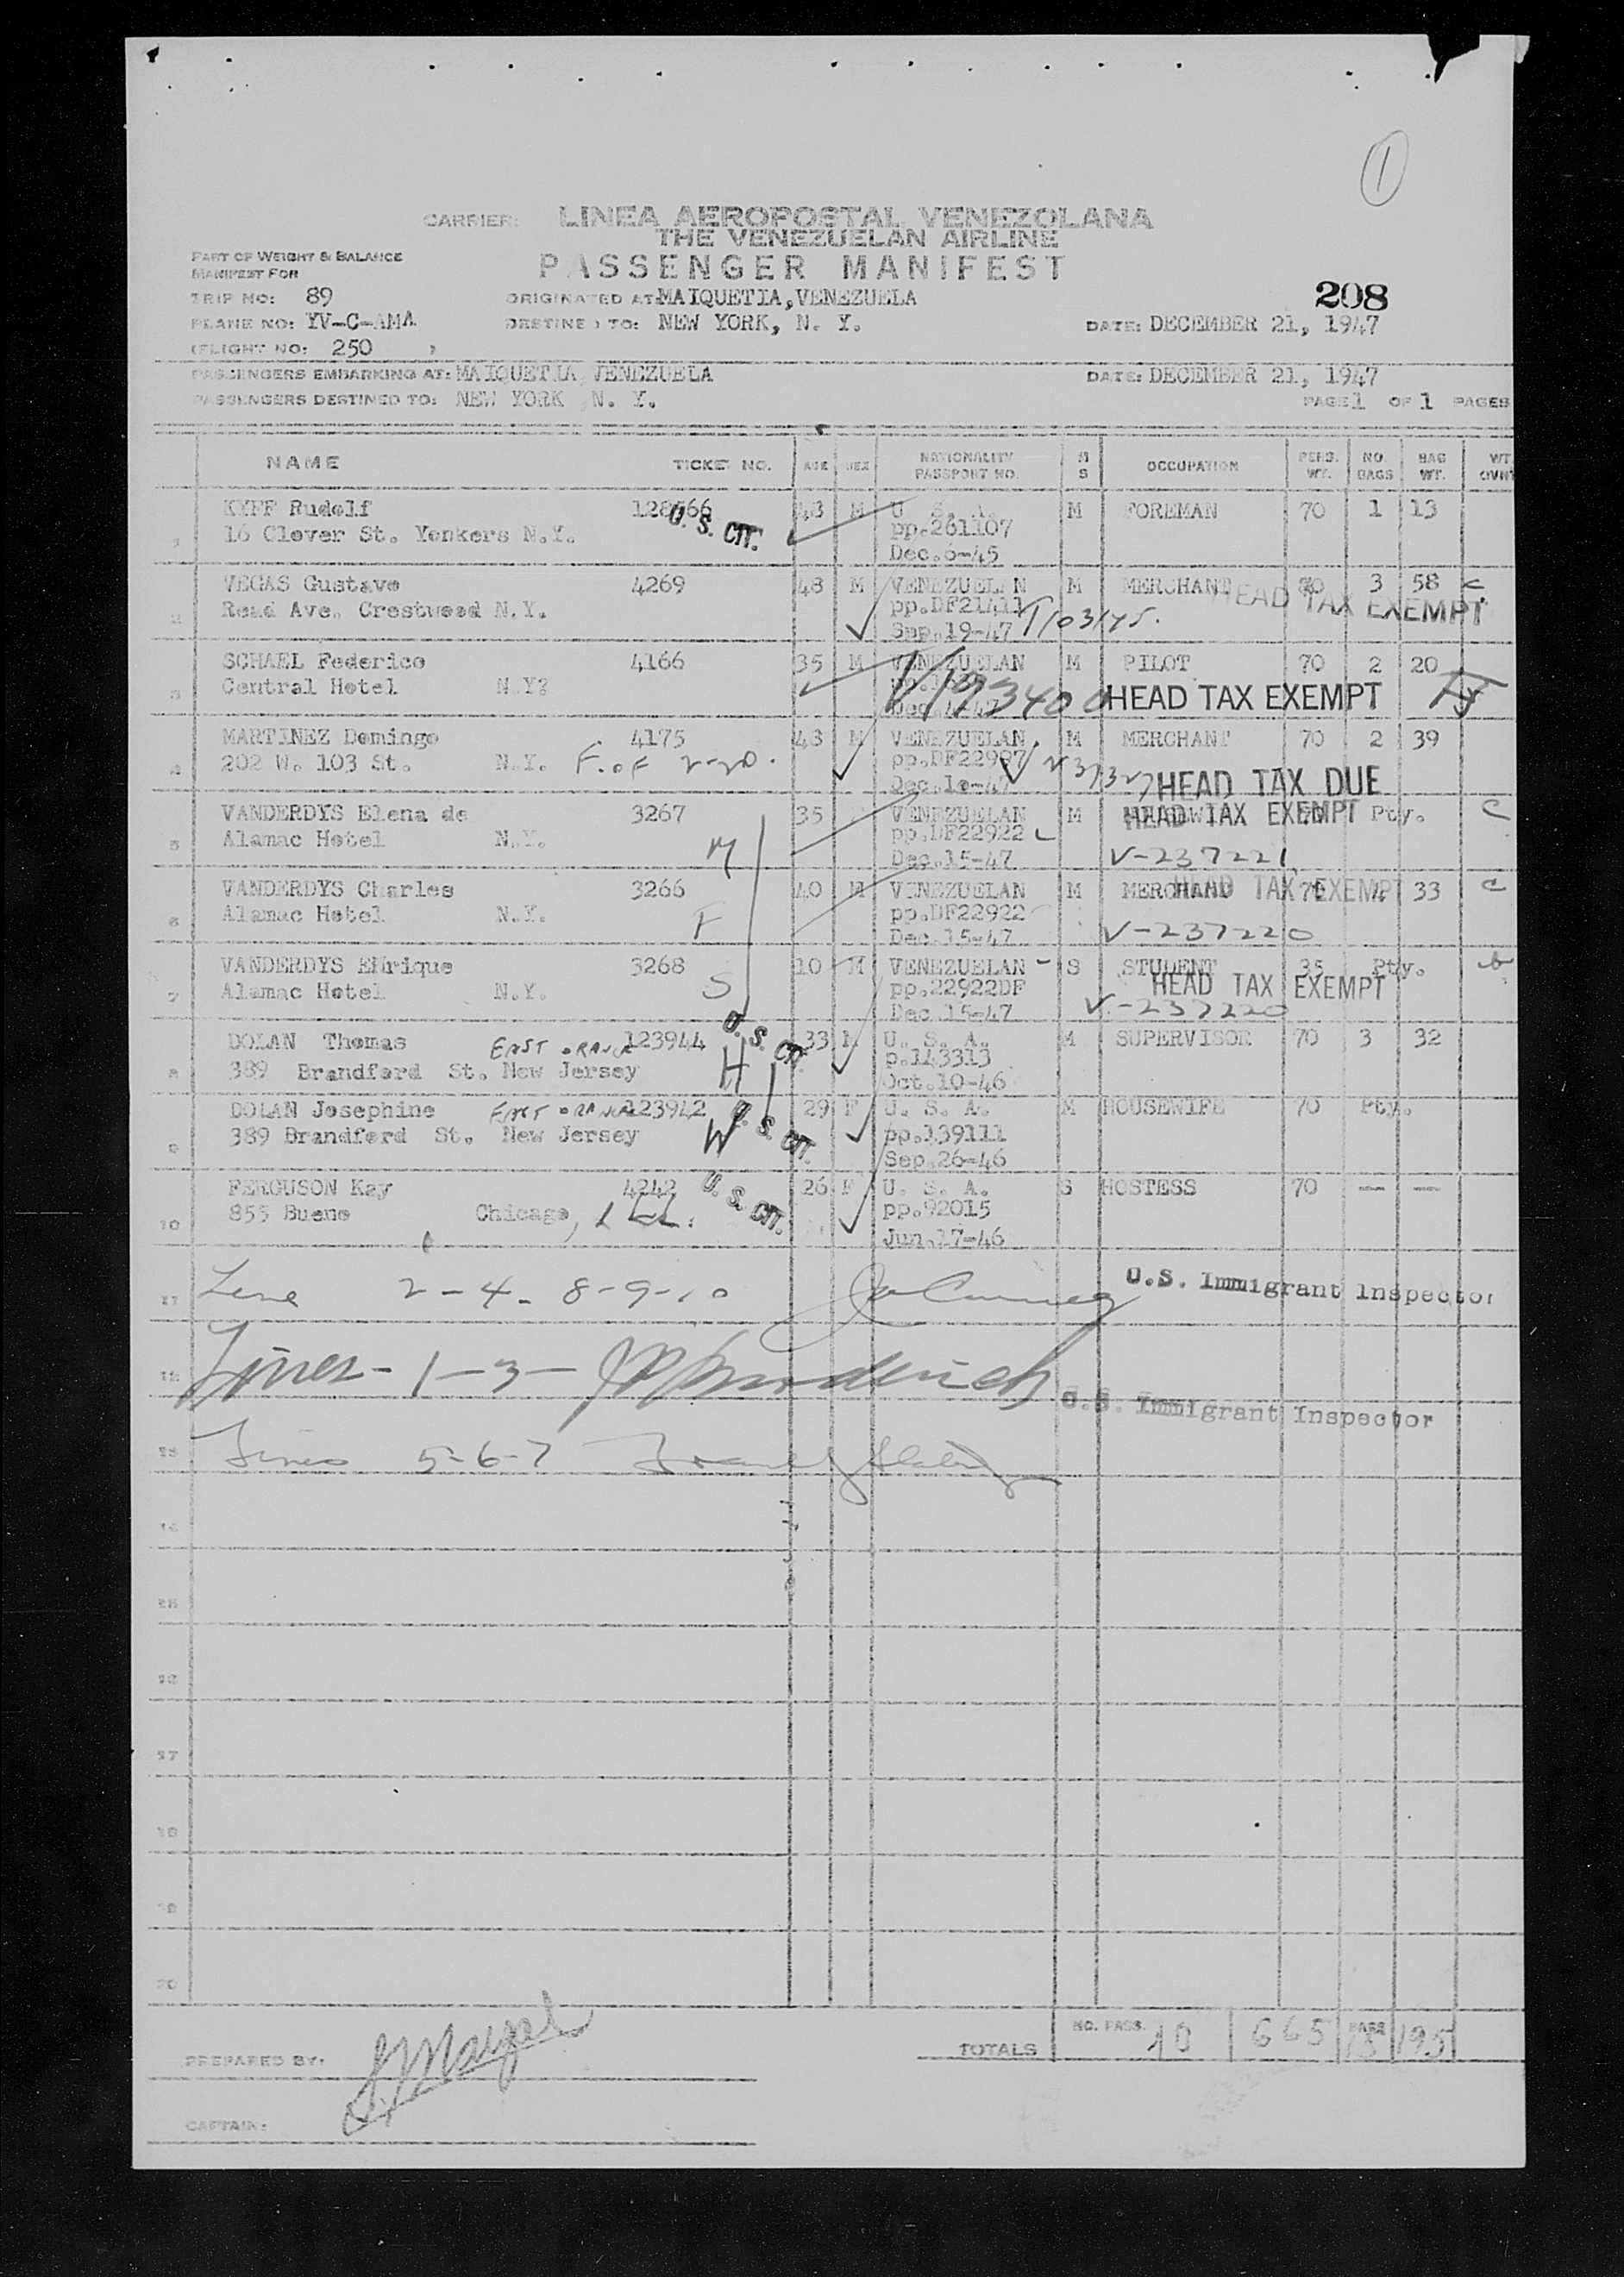 1
CARRIER: LINEA AEROPOSTAL VENEZOLANA
THE VENEZUELAN AIRLINE
PART OF WEIGHT & BALANCE
PASSENGER MANIFEST
MANIFEST FOR
TRIP NO: 89 ORIGINATED AT: MAIQUETIA, VENEZUELA 208
PLANE NO: YV-C-AMA DESTINED TO: NEW YORK, N. Y. DATE: DECEMBER 21, 1947
(FLIGHT NO: 250 )
PASSENGERS EMBARKING AT: MAIQUETIA VENEZUELA DATE: DECEMBER 21, 1947
PASSENGERS DESTINED TO: NEW YORK N. Y. PAGE 1 OF 1 PAGES
NAME TICKET NO. AGE SEX NATIONALITY PASSPORT NO. M S OCCUPATION PERS. WT. NO. BAGS BAG WT. WT.
KYFF Rudolf 128566 48 M U. S. A. M FOREMAN 70 1 13
1 16 Clover St. Yonkers N.Y. U. S. CIT. pp.261107
Dec.6-45
VEGAS Gustavo 4269 48 M VENEZUELAN M MERCHANT 70 3 58 c
2 Read Ave. Crestwood N.Y. HEAD TAX EXEMPT
Sep.19-47
SCHAEL Federico 4166 35 M VENEZUELAN M PILOT 70 2 20
3 Central Hotel N.Y? V193400 HEAD TAX EXEMPT
MARTINEZ Domingo 4175 43 M VENEZUELAN M MERCHANT 70 2 39
4 202 W. 103 St. N.Y. F. of 2-20. pp.DF22907
HEAD TAX DUE
VANDERDYS Elena de 3267 35 VENEZUELAN M HEAD TAX EXEMPT Pty. C
5 Alamac Hotel N.Y. M pp.DF22922
Dec.15-47 V-237221
VANDERDYS Charles 3266 40 M VENEZUELAN M MERCHANT HEAD TAX EXEMPT 70 4 33 c
6 Alamac Hotel N.Y. F pp.DF22922
Dec.15-47 V-237220
VANDERDYS ENrique 3268 10 M VENEZUELAN S STUDENT 35 Pty.
7 Alamac Hotel N.Y. S pp.22922DF HEAD TAX EXEMPT
Dec.15-47 V-237220
DOLAN Thomas EAST ORANGE 123944 U. S. CIT. 33 M U. S. A. M SUPERVISOR 70 3 32
8 389 Brandford St. New Jersey H p.143313
Oct.10-46
DOLAN Josephine EAST ORANGE 123942 U. S. CIT. 29 F U. S. A. M HOUSEWIFE 70 Pty.
9 389 Brandford St. New Jersey W pp.139111
Sep.26-46
FERGUSON Kay 4242 U. S. CIT. 26 F U. S. A. S HOSTESS 70 --- ---
10 855 Buene Chicago, Ill. pp.92015
Jun.17-46
11 Line 2-4-8-9-10 U.S. Immigrant Inspector
12 Lines-1-3- U.S. Immigrant Inspector
13 Lines 5-6-7
14
15
16
17
18
19
20
TOTALS NO. PASS. 10 665 BAGS 15 195
PREPARED BY:
CAPTAIN: